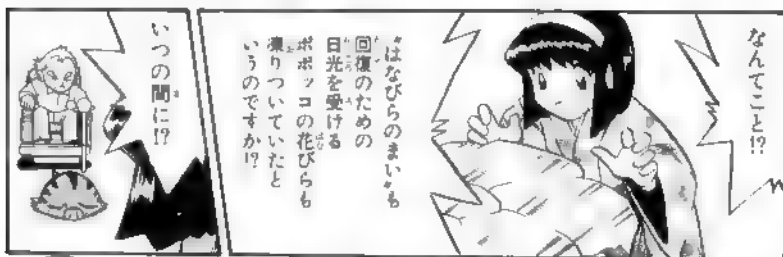 なんてこと!?
“はなびらのまい”も
回復のための
日光を受ける
ポポッコの花びらも
凍りついていたと
いうのですか!?
いつの間に!?